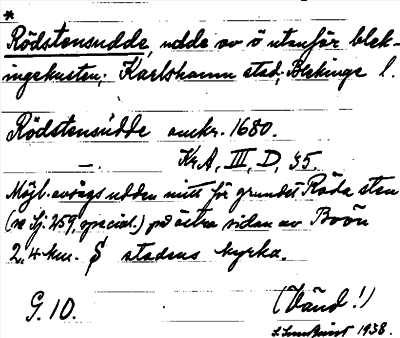 *
Rödstensudde, udde av ö utanför blek-
ingekusten; Karlshamn stad, Blekinge l.
Rödstensudde omkr. 1680.
—. Kr.A, III, D, 35.
Möjl. avsågs udden mitt för grundet Röda sten
(se Sj. 259, special.) på östra sidan av Boön
2,4 km. S stadens kyrka.
G. 10. (Vänd!)
1938.